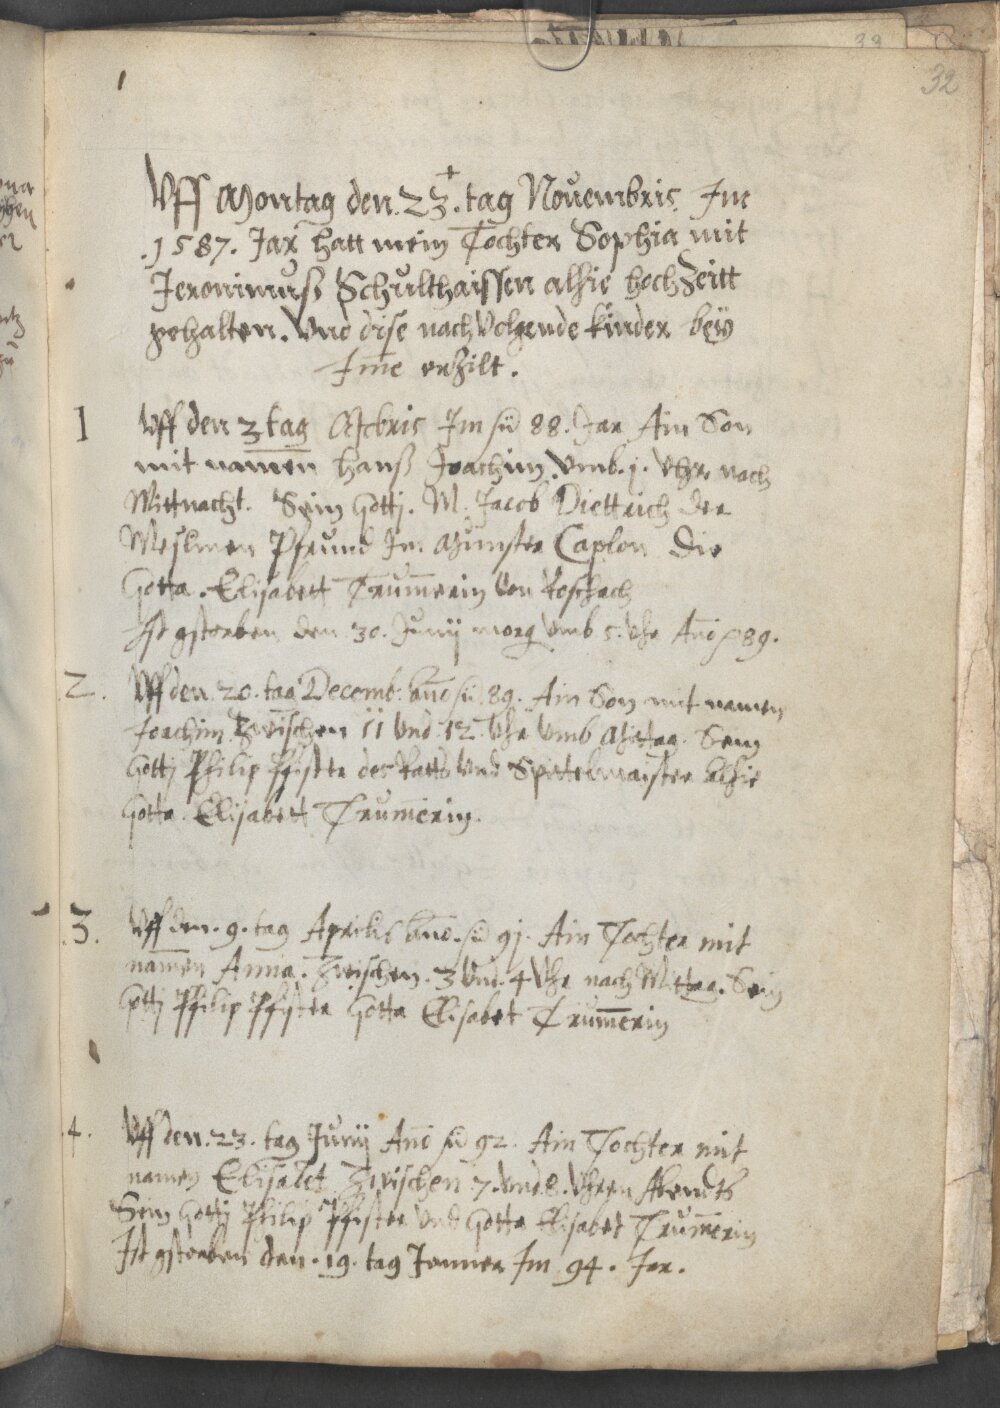 32
Vff Montag den .23. tag Nouembris Im
.1587. Jar hatt mein Tochter Sophia mit
Jeronimuß Schulthaissen alhie hochzeitt
gehalten. Vnd dise nach volgende kinder beÿ
Ime erzilt.
1 Vff den 3 tag Im fü 88. Jar Ain Son
mit namen hanß Joachim Vmb .j. Vhr nach
Mittnacht. Sein Götti. M. Jacob Diettrich der
Pfrund Im Münster Caplon Die
Gotta. Elisabett Trümerin von Roschach
Ist gstorben den 30. Junij morg vmb 5. Vhr Año 89.
2. Vff den 20. tag Decemb. Año fü 89. Ain Son mit namen
Joachim Zwischen 11 Vnd 12 Vhr Vmb Mitag. Sein
Götti Philip Pfister des Ratts Vnd Spittelmaister alhie
Gotta. Elisabett Trumerin.
.3. Vff den .9. tag Aprilis Año. fü 9j. Ain Tochter mit
namen Anna. Zwischen .3 Vnd .4 Vhr nach Mittag. Sein
Götti Philip Pfister Gotta Elisabet Trümerin
.4. Vff den .23. tag Junij Año fü 92. Ain Tochter mit
namen Elisabet Zwischen 7. vnd 8. Vhren Abendts
Sein Götti Philip Pfister Vnd Gotta Elisabet Trümerin
Ist gstorben den .19. tag Jenner Im 94. Jar.